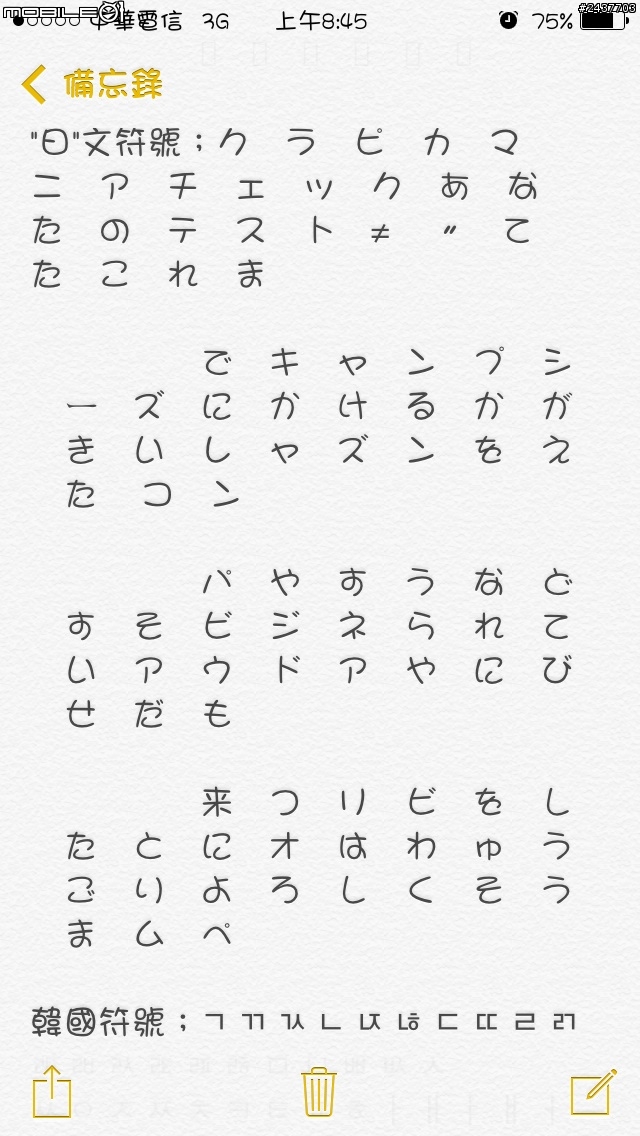 MOBILE01 #2437703
中華電信 3G 上午8:45 75%
備忘錄
"日"文符號；ク ラ ピ カ マ
ニ ア チ ェ ッ ク あ な
た の テ ス ト ≠ 〃 て
た こ れ ま
で キ ャ ン プ シ
ー ズ に か け る か が
き い し ャ ズ ン を え
た コ ン
パ や す う な ど
す そ ビ ジ ネ ら れ て
い ア ウ ド ア や に び
せ だ も
来 つ リ ビ を し
た と に オ は わ ゅ う
ご り よ ろ し く そ う
ま ム ペ
韓國符號；ㄱ ㄲ ㄳ ㄴ ㄵ ㄶ ㄷ ㄸ ㄹ ㄺ